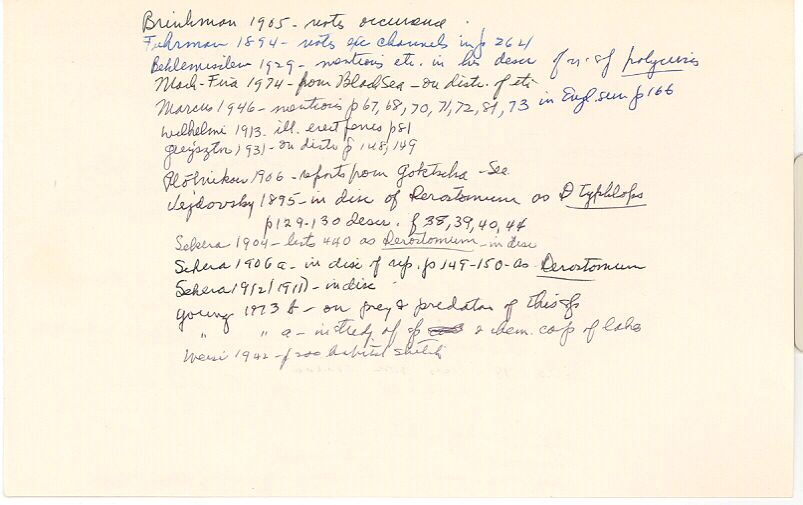 Brinkman 1905 - notes occurance.
Fuhrman 1894 - notes exc channels in p 262/
Beklemischev 1929 - mentions etc. in his descr of n. sp polycirris
Mack-Fira 1974 - from Black Sea - on distr. of etc
Marcus 1946 - mentions p 67, 68, 70, 71, 72, 81, 73 in Engl. sum p 166
Wilhelmi 1913. ill. erect penes p 81
Gieysztor 1931 - on distr p 148, 149
Plotnikow 1906 - reports from Goktscha - See
Vejdovsky 1895 - in disc of Derostomum as D typhlops
p 129-130 descr. f 38, 39, 40, 44
Sekera 1904 - lists 440 as Derostomum - in disc
Sekera 1906 a - in disc of rep. p 149-150 - as Derostomum
Sekera 1912 (1911) - in disc
Young 1973 b - on prey & predator of this sp
" " a - in study of sp & chem. co/p of lakes
1942 - p 200 habitus sketch